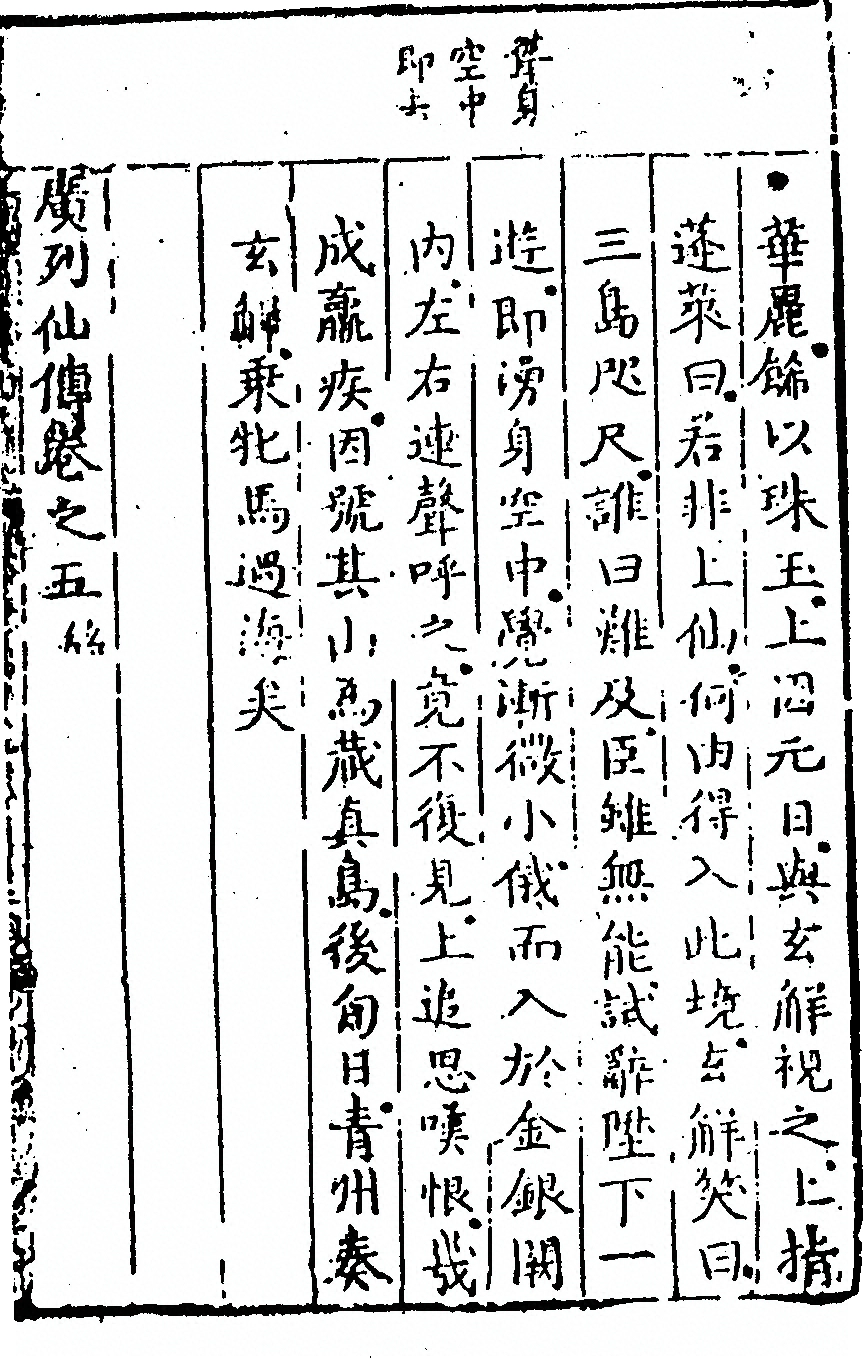 聳身
空中
即去
華麗飾以珠玉上因元日與玄解視之上指
蓬萊曰若非上仙何由得入此境玄解笑曰
三島咫尺誰曰難及臣雖無能試辭陛下一
遊即湧身空中覺漸微小俄而入於金銀闕
內左右連聲呼之竟不復見上追思嘆恨幾
成羸疾因號其山為藏真島後旬日青州奏
玄解乘牝馬過海矣
廣列仙傳卷之五終